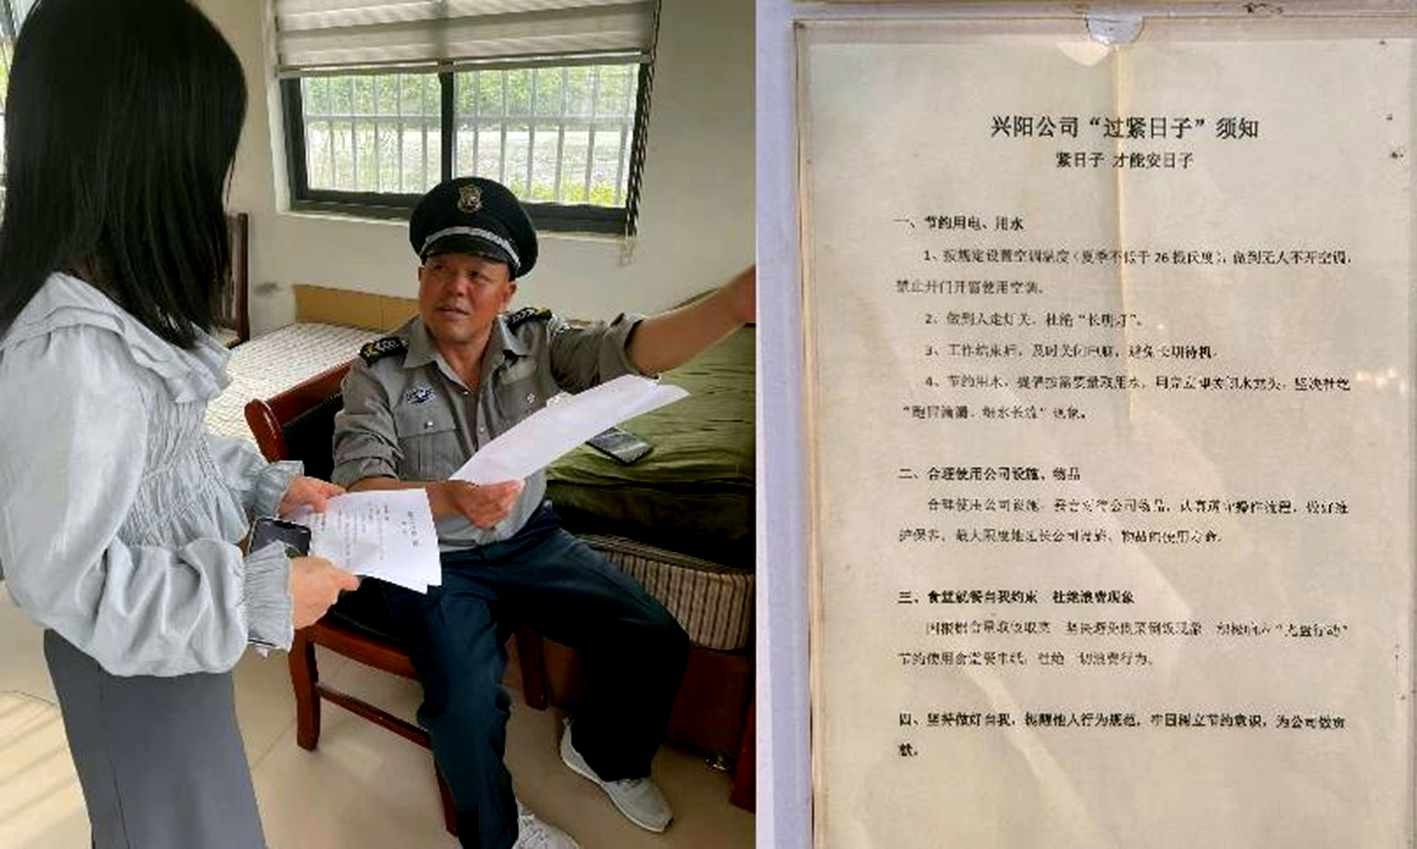 兴阳公司“过紧日子”须知
紧日子 才能安日子
一、节约用电、用水
1、按规定设置空调温度（夏季不低于26摄氏度），做到无人不开空调，
禁止开门开窗使用空调。
2、做到人走灯关，杜绝“长明灯”。
3、工作结束后，及时关闭电脑，避免长期待机。
4、节约用水，提倡按需要量取用水，用完立即关闭水龙头，坚决杜绝
“跑冒滴漏、细水长流”现象。
二、合理使用公司设施、物品
合理使用公司设施，妥善对待公司物品，认真遵守操作流程，做好维
护保养，最大限度地延长公司设施、物品的使用寿命。
三、食堂就餐自我约束 杜绝浪费现象
坚决避免剩菜剩饭现象 积极响应“光盘行动”
节约使用食堂餐巾纸，杜绝一切浪费行为。
四、坚持做好自我，提醒他人行为规范，牢固树立节约意识，为公司做贡
献。